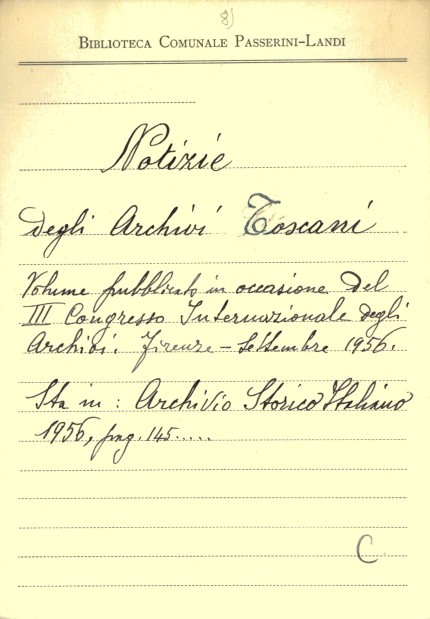 8)
BIBLIOTECA COMUNALE PASSERINI-LANDI
Notizie
degli Archivi Toscani
Volume pubblicato in occasione del
III Congresso Internazionale degli
Archivi. Firenze - Settembre 1956.
Sta in: Archivio Storico Italiano
1956, pag. 145.....
C